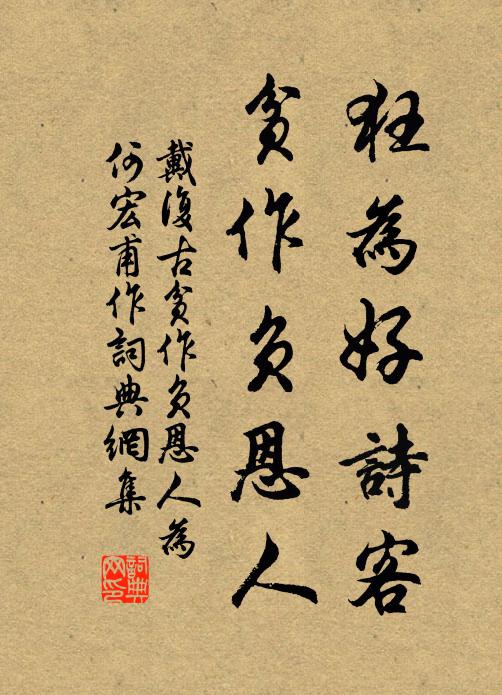 狂為好詩客
貧作負恩人
戴復古貧作負恩人為
何宏甫作詞典網集
詞典
网印